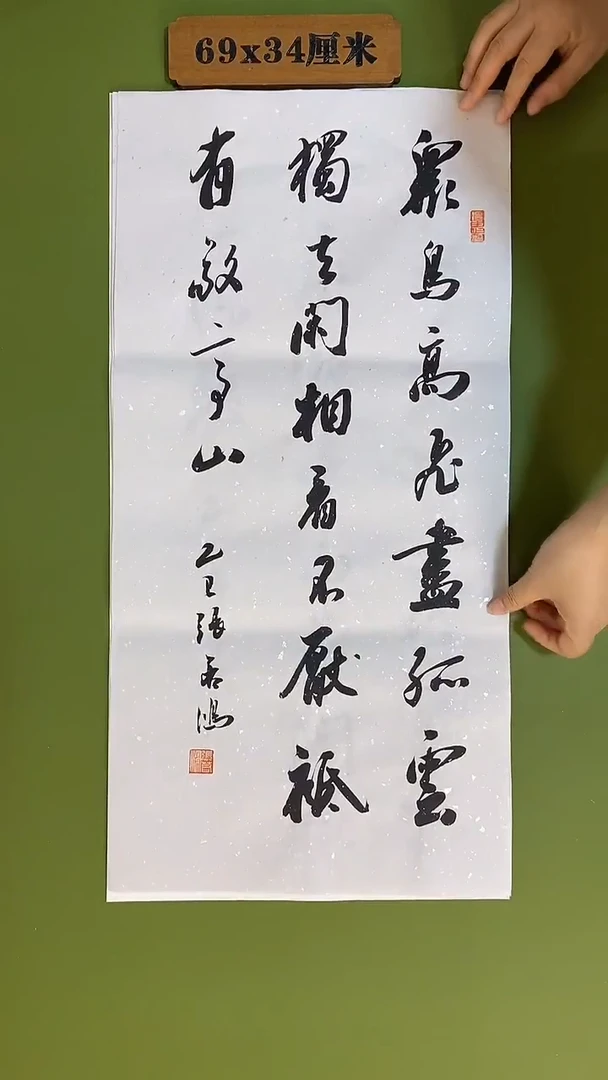 69x34厘米
眾鳥高飛盡孤雲
獨去閑相看不厭祇
有敬亭山
乙巳張若鴻